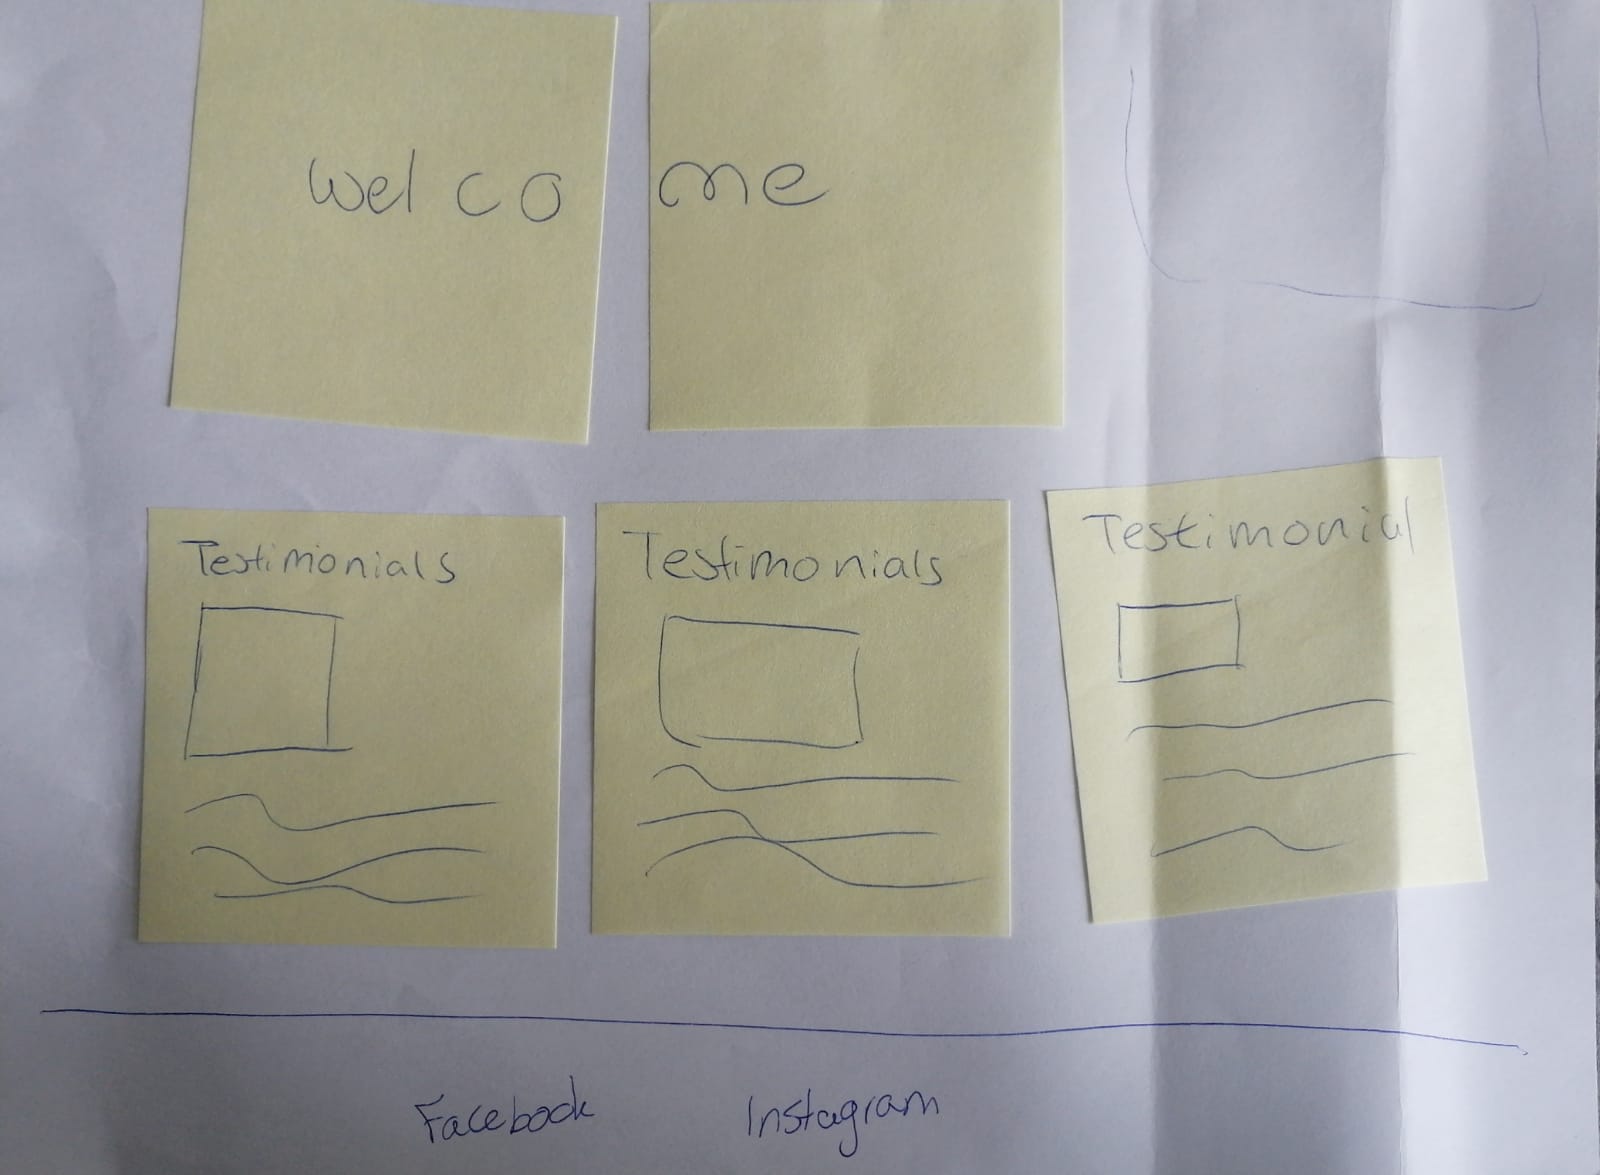 welcome
Testimonials
Testimonials
Testimonial
Facebook
Instagram